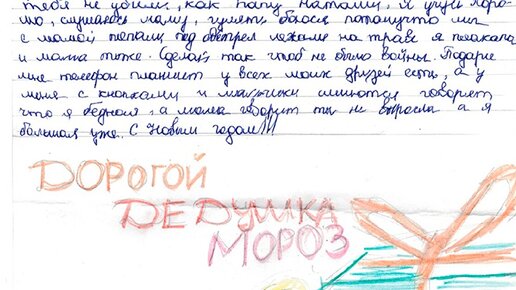 тебя не убили, как папу Наташи, я учусь хоро-
шо, слушаюсь маму, гулять боюся потомушто мы
с мамой попали под обстрел лежали на траве я плакала
и мама тоже. Сделай так чтоб не было войны. Подари
мне телефон планшет у всех моих друзей есть, а у
меня с кнопками и мальчики смиются говорят
что я бедная, а мама говорит ты не выросла а я
большая уже. С Новым годом!!!
ДОРОГОЙ
ДЕДУШКА
МОРОЗ